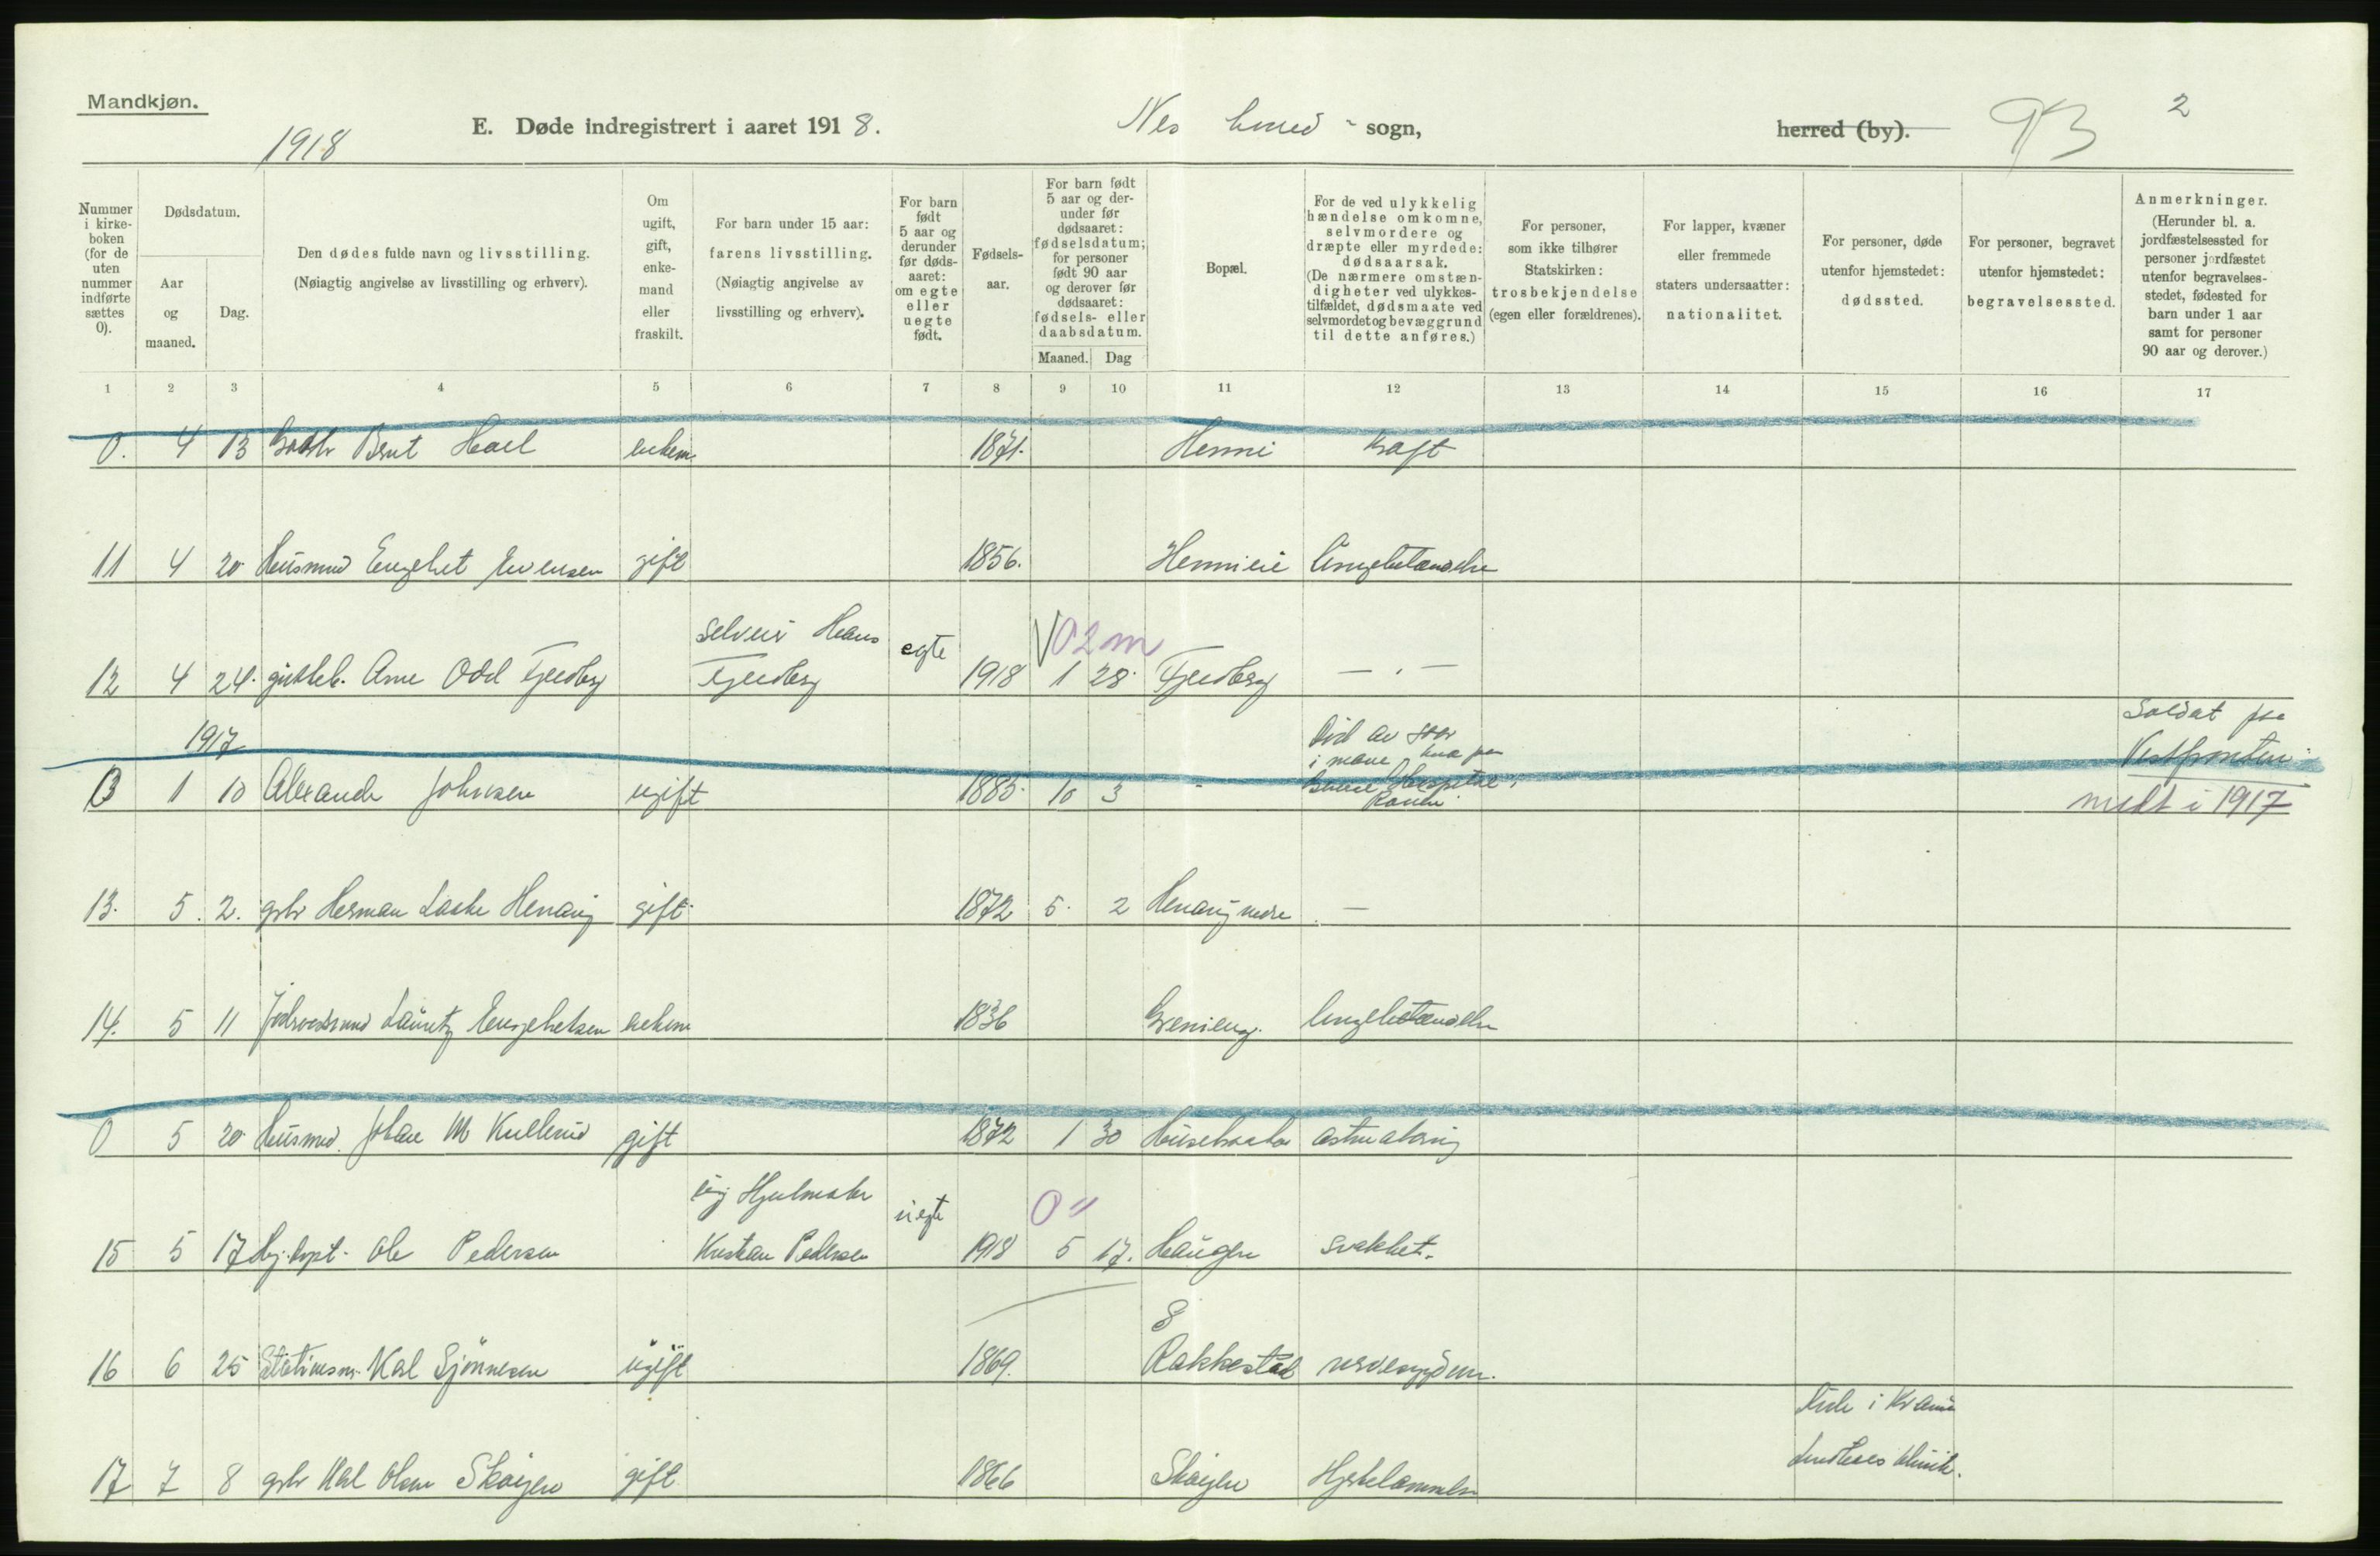 Mandkjøn.
E. Døde indregistrert i aaret 1918.
Nes
sogn,
herred (by).
93
2
1918
Nummer i kirke-boken (for de uten nummer indførte sættes 0).
Dødsdatum.
Aar og maaned.
Dag.
Den dødes fulde navn og livsstilling.
(Nøiagtig angivelse av livsstilling og erhverv).
Om ugift, gift, enke-mand eller fraskilt.
For barn under 15 aar: farens livsstilling.
(Nøiagtig angivelse av livsstilling og erhverv).
For barn født 5 aar og derunder før døds-aaret: om egte eller uegte født.
Fødsels-aar.
For barn født 5 aar og der-under før dødsaaret: fødselsdatum; for personer født 90 aar og derover før dødsaaret: fødsels- eller daabsdatum.
Maaned. Dag
Bopæl.
For de ved ulykkelig hændelse omkomne, selvmordere og dræpte eller myrdede: dødsaarsak.
(De nærmere omstæn-digheter ved ulykkes-tilfældet, dødsmaate ved selvmordet og bevæggrund til dette anføres.)
For personer, som ikke tilhører Statskirken: trosbekjendelse (egen eller forældrenes).
For lapper, kvæner eller fremmede staters undersaatter: nationalitet.
For personer, døde utenfor hjemstedet: dødssted.
For personer, begravet utenfor hjemstedet: begravelsessted.
Anmerkninger.
(Herunder bl. a. jordfæstelsessted for personer jordfæstet utenfor begravelses-stedet, fødested for barn under 1 aar samt for personer 90 aar og derover.)
1 2 3 4 5 6 7 8 9 10 11 12 13 14 15 16 17
0. 4 13 Bernt enkem. 1871. Henni Kraft
11 4 20 Husmd Engebret Evensen gift 1856. Hennieie Lungebetændelse
Selveier Hans egte V 02m
12 4 24. Arne Odd Fjeldberg Fjeldberg 1918 1 28. Fjeldberg — . —
1917
Død av saar
Soldat paa
i
Vestfronten
13 1 10 Alexander Johnsen ugift 1885. 10 3 - Hospital
Rouen
meldt i 1917
13. 5. 2. gbr Herman Henni gift 1872 5. 2 nedre —
14. 5 11 Lauritz Engebretsen enkem 1836 Lungebetændelse
0 5 20 Husmd. Johan M Kullerud gift 1872 1 30
ug Hjulmaker uegte 0 "
15 5 17 Hj.døpt. Ole Pedersen Kristian Pedersen 1918 5 17. Haugen Svakhet.
8
16 6 25 Stationsm. Karl Sjønnesen ugift 1869. Rakkestad nervesygdom.
Døde i Krania
17 7 8 gbr Karl Olsen Skøien gift 1866 Skøien Hjertelammelse klinik.